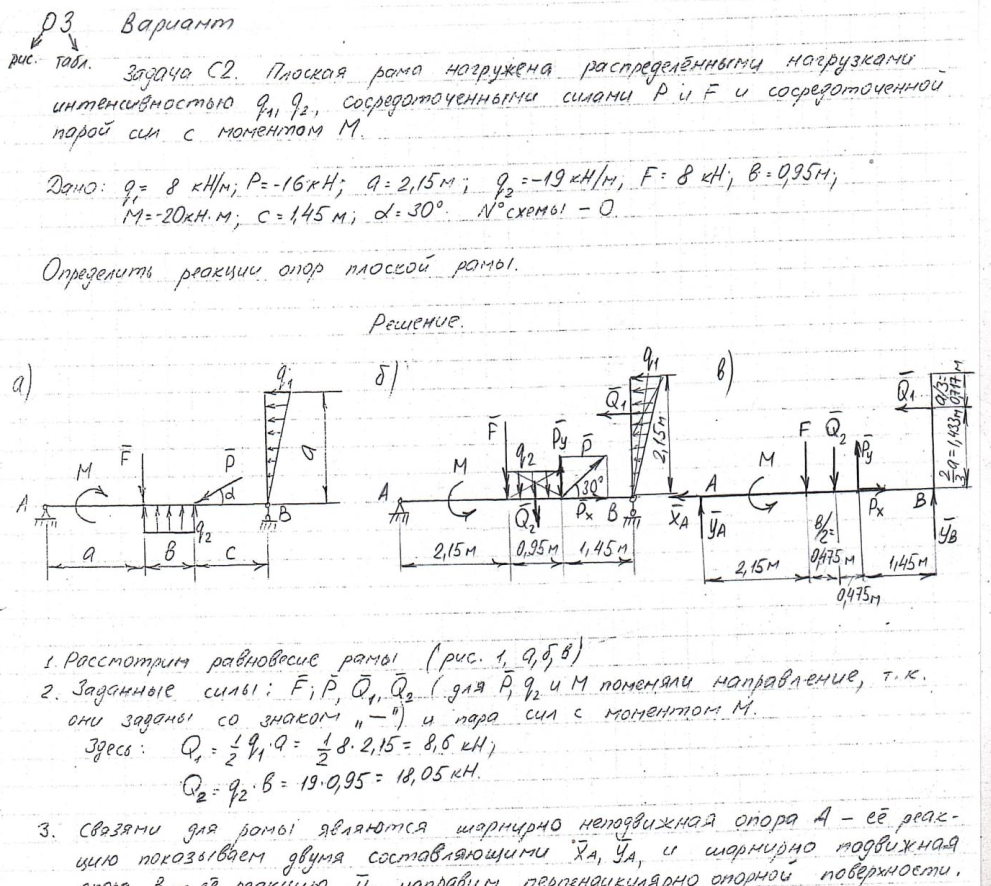 03 Вариант
рис. табл.
Задача С2. Плоская рама нагружена распределёнными нагрузками
интенсивностью q1, q2, сосредоточенными силами P и F и сосредоточенной
парой сил с моментом M.
Дано: q1= 8 кН/м; P=-16кН; a=2,15м; q2=-19кН/м, F= 8 кН; в=0,95м;
M=-20кН·м; c=1,45м; α=30°. N°схемы - 0.
Определить реакции опор плоской рамы.
Решение.
а)
q1
a
F̅
P̅
M
α
A
B
q2
a
в
c
б)
q1
Q̅1
2,15м
F̅
q2
P̅y
P̅
M
30°
A
Q̅2
P̅x
B
2,15м
0,95м
1,45м
в)
Q̅1
a/3=0,717 м
2/3a=1,433м
F
Q̅2
P̅y
M
A
P̅x
B
X̅A
Y̅A
Y̅B
2,15м
в/2=0,475м
0,475м
1,45м
1. Рассмотрим равновесие рамы (рис. 1, а,б,в)
2. Заданные силы: F̅; P̅, Q̅1, Q̅2 (для P̅, q2 и M поменяли направление, т.к.
они заданы со знаком „-") и пара сил с моментом M.
Здесь: Q1 = 1/2 q1·a = 1/2 8·2,15 = 8,6 кН;
Q2 = q2·в = 19·0,95 = 18,05 кН.
3. Связями для рамы являются шарнирно неподвижная опора A - её реак-
цию показываем двумя составляющими X̅A, Y̅A, и шарнирно подвижная
направим перпендикулярно опорной поверхности.